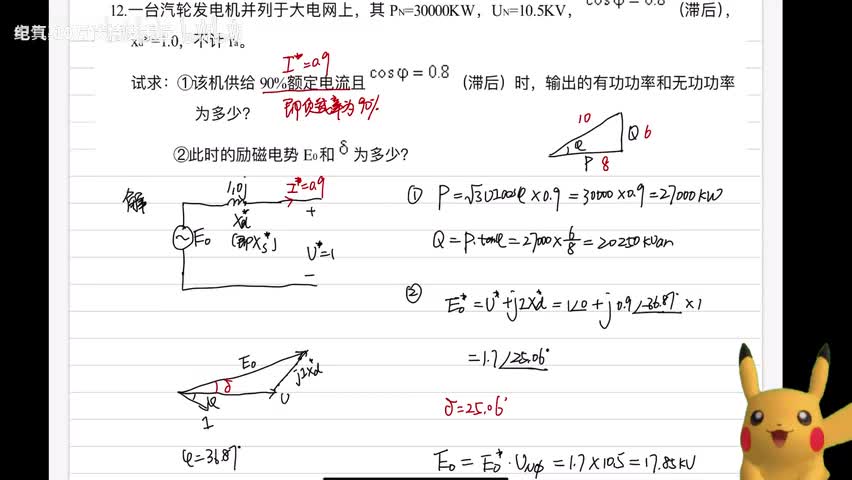 12.一台汽轮发电机并列于大电网上，其 PN=30000KW，UN=10.5KV，cosφ=0.8（滞后），
Xd*=1.0，不计 ra。
试求：①该机供给 90%额定电流且 cosφ=0.8（滞后）时，输出的有功功率和无功功率
为多少？
I*=0.9
即负载率为90%
②此时的励磁电势 E0和 δ 为多少？
10
Q 6
φ
P 8
解
1.0j
I*=0.9
Xd*
(即Xs*)
E0
+
U*=1
−
① P=√3UIcosφ×0.9=30000×0.9=27000KW
Q=P·tanφ=27000×6/8=20250KVar
② E0*=U*+jIXd*=1∠0+j0.9∠-36.87°×1
=1.7∠25.06°
δ=25.06°
E0
δ
φ
U
jIXd*
I
φ=36.87°
E0=E0*·UNφ=1.7×10.5=17.85KV